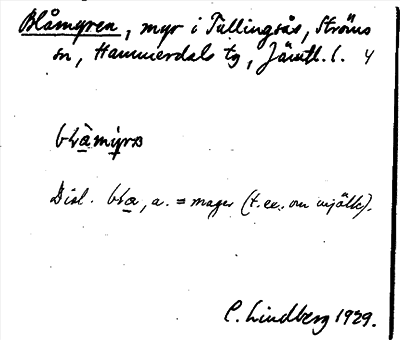 Blåmyren, myr i Tullingsås, Ströms
sn, Hammerdals tg, Jämtl. l. 4
Dial. bla, a. = mager (t. ex. om mjölk).
C. Lindberg 1929.